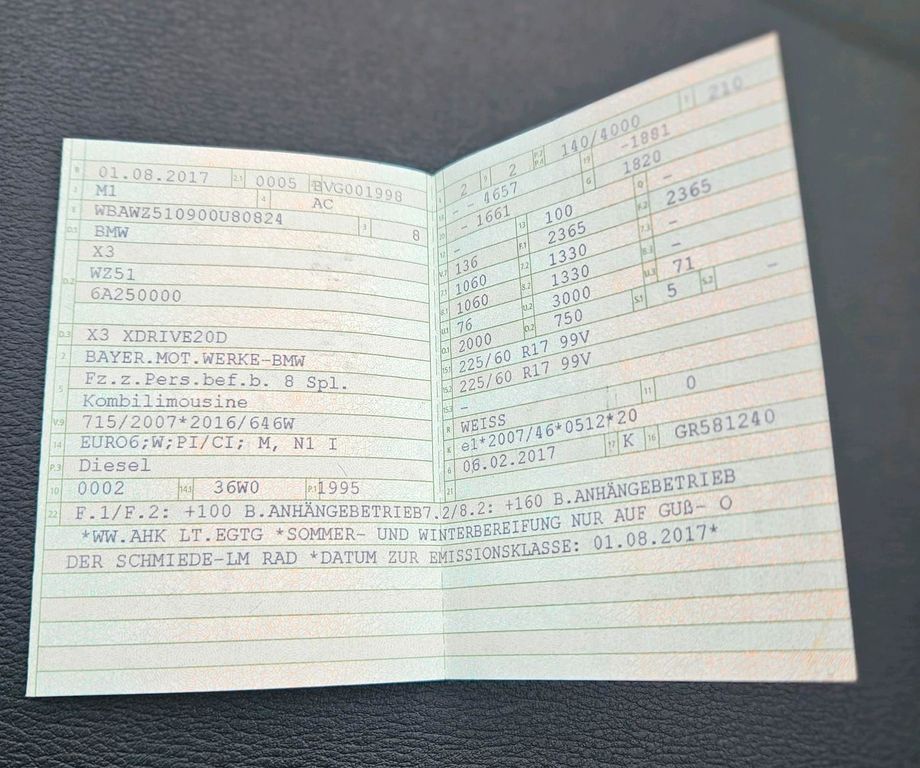 B 01.08.2017 2.1 0005 2.2 BVG001998
J M1 4 AC
E WBAWZ510900U80824 3 8
D.1 BMW
X3
D.2 WZ51
6A250000
D.3 X3 XDRIVE20D
2 BAYER.MOT.WERKE-BMW
5 Fz.z.Pers.bef.b. 8 Spl.
Kombilimousine
V.9 715/2007*2016/646W
14 EURO6;W;PI/CI; M, N1 I
P.3 Diesel
10 0002 14.1 36W0 P.1 1995
L 2 9 2 P.2 P.4 140/4000 T 210
18 - - 4657 19 -1881
20 - 1661 G 1820
12 - 13 100 Q -
V.7 136 F.1 2365 F.2 2365
7.1 1060 7.2 1330 7.3 -
8.1 1060 8.2 1330 8.3 -
U.1 76 U.2 3000 U.3 71
O.1 2000 O.2 750 S.1 5 S.2 -
15.1 225/60 R17 99V
15.2 225/60 R17 99V
15.3 -
R WEISS 11 0
K e1*2007/46*0512*20
6 06.02.2017 17 K 16 GR581240
21
22 F.1/F.2: +100 B.ANHÄNGEBETRIEB7.2/8.2: +160 B.ANHÄNGEBETRIEB
*WW.AHK LT.EGTG *SOMMER- UND WINTERBEREIFUNG NUR AUF GUß- O
DER SCHMIEDE-LM RAD *DATUM ZUR EMISSIONSKLASSE: 01.08.2017*